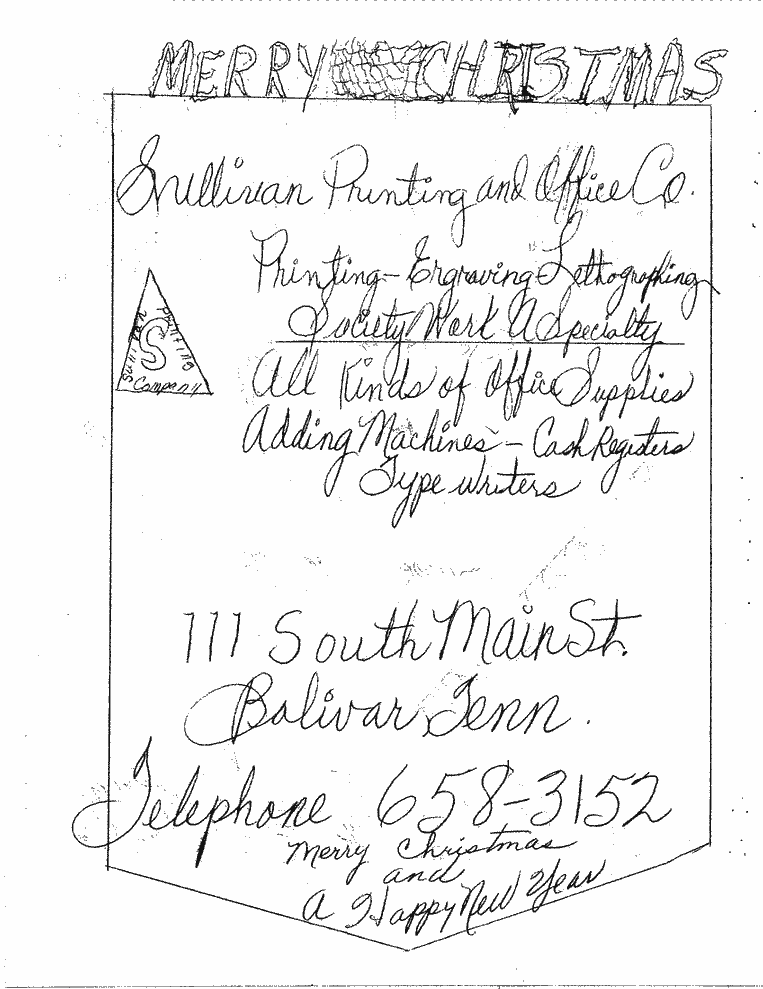 MERRY CHRISTMAS
Sullivan Printing and Office Co.
Printing - Engraving Lethographing
Society Work A Specialty
Sullivan Printing
S
Company
All Kinds of Office Supplies
Adding Machines - Cash Registers
Type writers
111 South Main St.
Bolivar, Tenn.
Telephone 658-3152
Merry Christmas
and
A Happy New Year